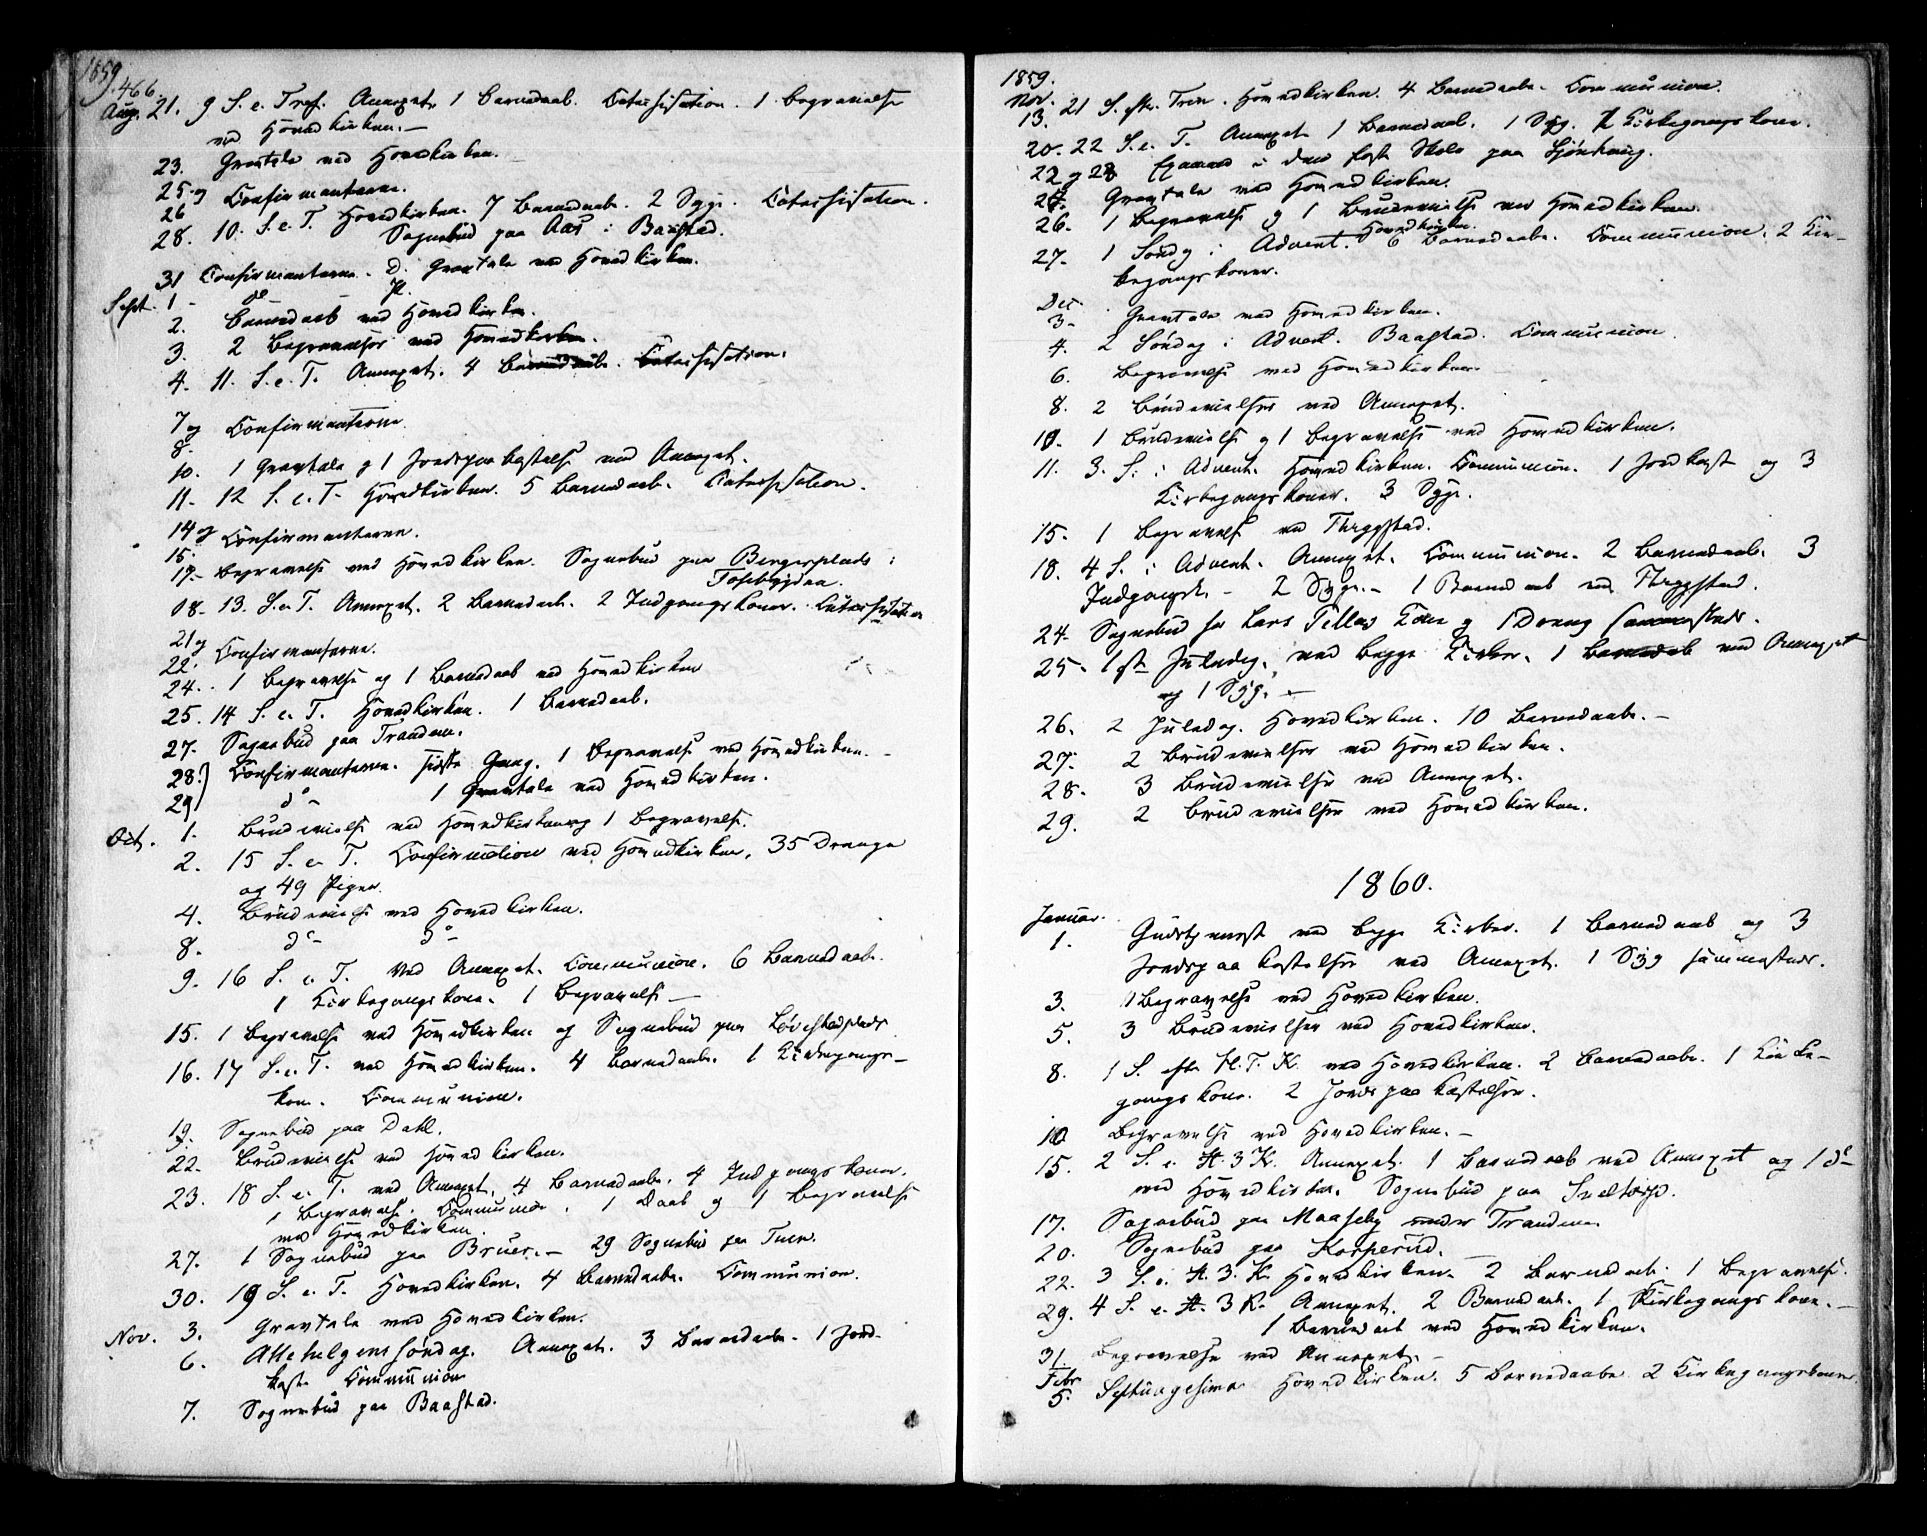 1859.
466.
Aug. 21. 9 S. e. Tref. Annexet. 1 Barnedaab. Catechisation. 1 Begravelse
ved Hovedkirken. —
23. Gravtale ved Hovedkirken.
25 og Confirmanterne.
26
28. 10. S. e. T. Hovedkirken. 7 Barnedaab. 2 Syge. Catechisation.
Sognebud paa Aas i Baastad.
31 Confirmanterne. D. Gravtale ved Hovedkirken.
Sept. 1 - do
2. Barnedaab ved Hovedkirken.
3. 2 Begravelser ved Hovedkirken.
4. 11. S. e. T. Annexet. 4 Barnedaab. Catechisation.
7 og Confirmanterne.
8.
10. 1 Gravtale og 1 Jordspaakastelse ved Annexet.
11. 12 S. e. T. Hovedkirken. 5 Barnedaab. Catechisation.
14 og Confirmanterne.
15.
17. Begravelse ved Hovedkirken. Sognebud paa Bergerplads i
18. 13. S. e. T. Annexet. 2 Barnedaab. 2 Indgangskoner. Catechisation
21 og Confirmanterne.
22.
24. 1 Begravelse og 1 Barnedaab ved Hovedkirken
25. 14 S. e. T. Hovedkirken. 1 Barnedaab.
27. Sognebud paa Trandem.
28. Confirmanterne. sidste Gang. 1 Begravelse ved Hovedkirken. -
29 do - 1 Gravtale ved Hovedkirken.
Oct. 1. Brudevielse ved Hovedkirken og 1 Begravelse.
2. 15 S. e. T. Confirmation ved Hovedkirken, 35 Drenge
og 49 Piger.
4. Brudevielse ved Hovedkirken.
8. do - do -
9. 16 S. e. T. Ved Annexet. Communion. 6 Barnedaab.
1 Kirkegangskone. 1 Begravelse —
15. 1 Begravelse ved Hovedkirken og Sognebud paa Løvestadplads
16. 17 S. e. T. ved Hovedkirken. 4 Barnedaab. 1 Kirkegangs-
kone. Communion.
19. Sognebud paa Dahl.
22. Brudevielse ved Hovedkirken.
23. 18 S. e. T. ved Annexet. 4 Barnedaab. 4 Indgangskoner.
1 Begravelse. Communion. 1 Daab og 1 Begravelse
ved Hovedkirken.
27. 1 Sognebud paa Bruer. — 29 Sognebud paa Tuen.
30. 19 S. e. T. Hovedkirken. 4 Barnedaab. Communion.
Nov. 3. Gravtale ved Hovedkirken.
6. Allehelgens Søndag. Annexet. 3 Barnedaab. 1 Jord-
kast. Communion
7. Sognebud paa Baastad.
1859.
Nov.
13. 21 S. eft. Trin. Hovedkirken. 4 Barnedaab. Communion.
20. 22 S. e. T. Annexet 1 Barnedaab. 1 Syg. 2 Kirkegangskoner.
22 og 23 Examen i den faste Skole paa
24. Gravtale ved Hovedkirken.
26. 1 Begravelse og 1 Brudevielse ved Hovedkirken.
Hovedkirken.
27. 1 Søndg i Advent. 6 Barnedaab. Communion. 2 Kir-
kegangskoner.
Dec.
3. Gravtale ved Hovedkirken.
4. 2 Søndag i Advent. Baastad. Communion
6. Begravelse ved Hovedkirken.
8. 2 Brudevielser ved Annexet.
10. 1 Brudevielse og 1 Begravelse ved Hovedkirken.
11. 3. S. i Advent. Hovedkirken. Communion. 1 Jordkast og 3
Kirkegangskoner. 3 Syge.
15. 1 Begravelse ved Thrygstad.
18. 4 S. i Advent. Annexet. Communion. 2 Barnedaab. 3
Indgangsk. - 2 Syge. - 1 Barnedaab ved Thrygstad.
24. Sognebud for Lars Kone og 1 Dreng sammesteds.
25. 1ste Juledag. ved begge Kirker. 1 Barnedaab ved Annexet
og 1 Syg. -
26. 2 Juledag. Hovedkirken. 10 Barnedaab. -
27. 2 Brudevielser ved Hovedkirken.
28. 3 Brudevielser ved Annexet.
29. 2 Brudevielser ved Hovedkirken.
1860.
Januar.
1. Gudstjeneste ved begge Kirker. 1 Barnedaab og 3
Jordspaakastelser ved Annexet. 1 Syg sammesteds.
3. 1 Begravelse ved Hovedkirken.
5. 3 Brudevielser ved Hovedkirken.
8. 1 S. efter H. T. K. ved Hovedkirken. 2 Barnedaab. 1 Kirke-
gangskone. 2 Jordspaakastelser.
10 Begravelse ved Hovedkirken. -
15. 2 S. e. H. 3 K. Annexet. 1 Barnedaab ved Annexet og 1 do
ved Hovedkirken. Sognebud paa
17. Sognebud paa Maaseby under Trandem
20. Sognebud paa Korperud.
22. 3 S. e. H. 3. K. Hovedkirken. 2 Barnedaab. 1 Begravelse.
29. 4 S. e. H. 3 K. Annexet. 2 Barnedaab. 1 Kirkegangskone. -
1 Barnedaab ved Hovedkirken.
31. Begravelse ved Annexet. -
Febr
5. Septuagesima Hovedkirken. 5 Barnedaab. 2 Kirkegangskoner